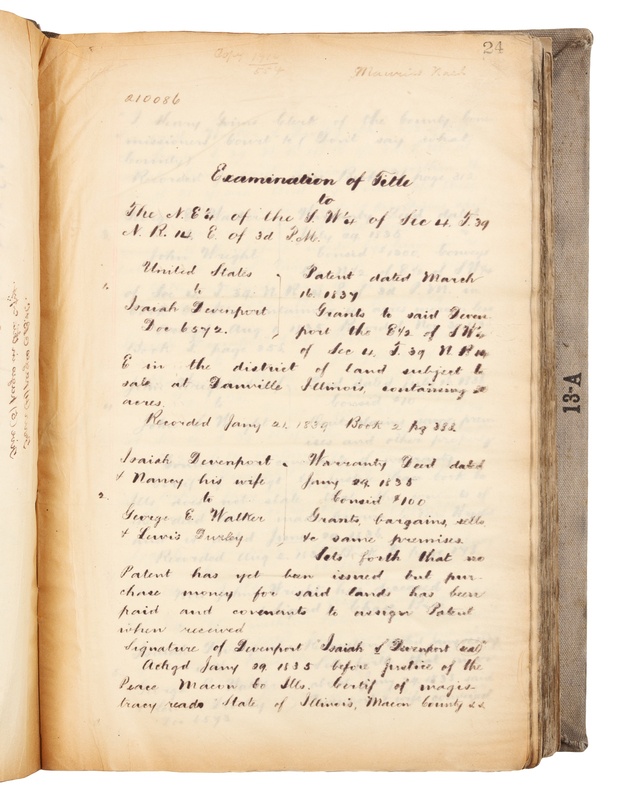 24
Maurice
210086
Examination of Title
to
The N.E¼ of the S.W¼ of Sec 4. T. 39
N. R. 14 E. of 3d P.M.
United States
to
Isaiah Devenport
Doc 6572.
Patent dated March
16. 1837
Grants to said Deven
port the E½ of S.W¼
of Sec 4. T. 39 N R 14
E in the district of land subject to
sale at Danville Illinois, containing
acres.
Recorded Jany 21. 1839 Book 2 pg 383
2.
Isaiah Devenport
& Nancy his wife
to
George E. Walker
& Lewis Turley
Warranty Deed dated
Jany 29. 1835
Consid $100
Grants, bargains, sells
&c same premises.
Sets forth that no
Patent has yet been issued but pur-
chase money for said lands has been
paid and covenants to assign Patent
when received
Signature of Devenport Isaiah Devenport seal
Ackgd Jany 29. 1835 before Justice of the
Peace Macon Co Ills. Certif of magis-
tracy reads State of Illinois, Macon County ss.
13-A